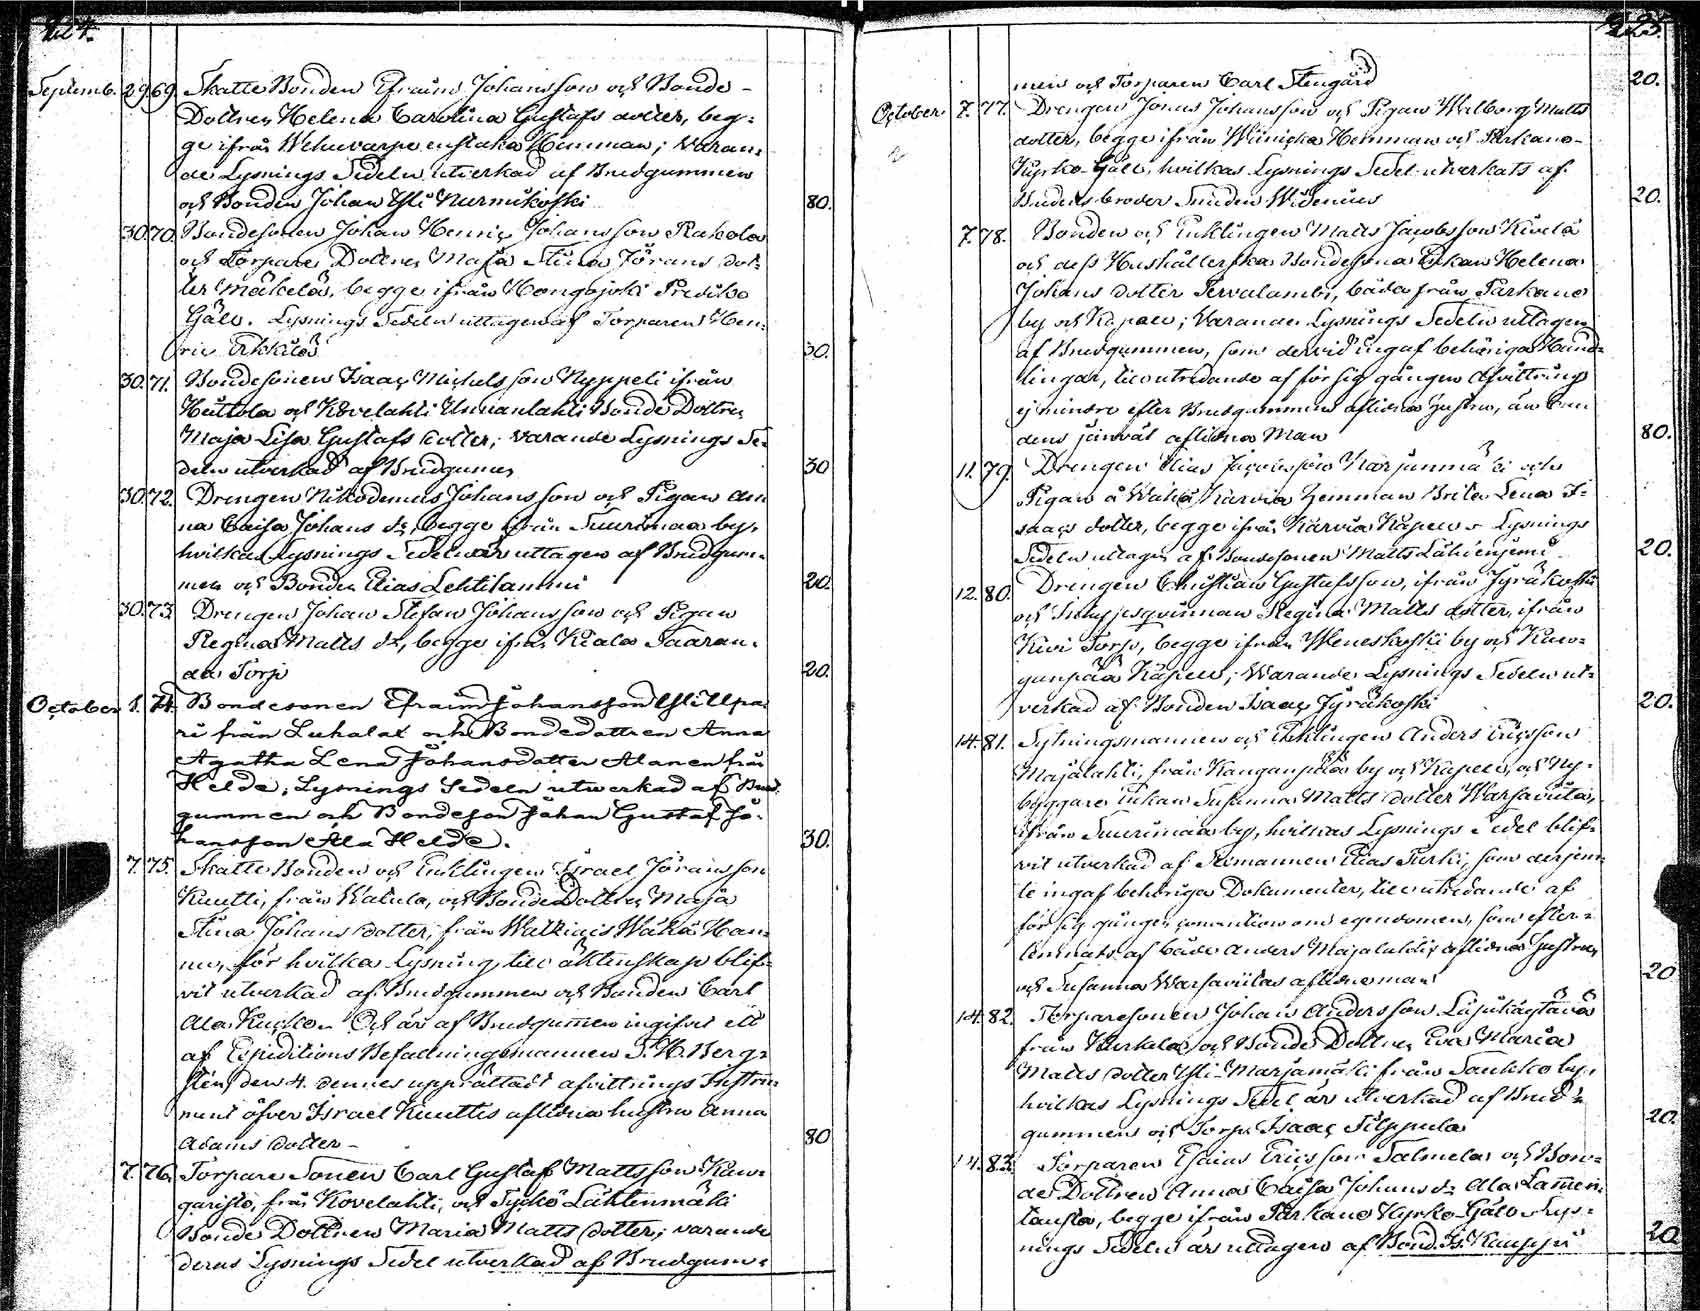 224.
Septemb. 29. 69. Skatte Bonden Efraim Johansson och Bonde-
Dottren Helena Carolina Gustafs dotter, beg-
ge ifrån Wehuvarpe enstaka Hemman; Varan-
de Lysnings Sedeln utverkad af Brudgummen
och Bonden Johan Yli Nurmikoski 80.
30. 70. Bondesonen Johan Henric Johansson Rakola
och Torpare Dottren Maja Stina Jörans dot-
ter Mäkelä, begge ifrån Hongojoki Prediko
Gäll. Lysnings Sedeln uttagen af Torparen Hen-
ric Erkkilä 30.
30. 71. Bondesonen Isaac Michelsson Nyppeli ifrån
Huttola och Kovelahti Unnanlahti Bonde Dottren
Maja Lisa Gustafs dotter; varande Lysnings Se-
deln utverkad af Brudgumen 30
30. 72. Drengen Nikodemus Johansson och Pigan An
na Caisa Johans dr, begge ifrån Suurimaa by,
hvilkas Lysnings Sedel är uttagen af Brudgum-
men och Bonden Elias Lehtilammi 20.
30. 73. Drengen Johan Stefan Johansson och Pigan
Regina Matts dr, begge ifrån Kiala Saaran-
da Torp 20.
October 1. 74. Bondesonen Efraim Johansson Yli Ylpä
ri från Luhalax och Bondedottren Anna
Agatha Lena Johansdotter Alanen från
Helde; Lysnings Sedeln utwerkad af Brud-
gummen och Bondeson Johan Gustaf Jo-
hansson Ala Helde. 30.
7. 75. Skatte Bonden och Enklingen Israel Jöransson
Knutti, från Watula, och Bonde Dottren Maja
Stina Johans dotter, från Walkiais Wähä Han-
nu, för hvilka Lysning till äktenskap blif-
vit utverkad af Brudgummen och Bonden Carl
Ala Kucko. Och är af Brudgummen ingifvit ett
af Expeditions Befallningsmannen T. H. Berg-
sten den 4. dennes upprättadt afvittrings Instru-
ment öfver Israel Knuttis aflidna hustru Anna
Adams dotter- 80
7. 76. Torpare Sonen Carl Gustaf Mattsson Kan-
garisto, från Kovelahti, och Sydkö Lähtenmäki
Bonde Dottren Maria Matts dotter; varande
deras Lysnings Sedel utverkad af Brudgum-
225.
men och Torparen Carl Stengård 20.
October 7. 77. Drengen Jonas Johansson och Pigan Walborg Matts
dotter, begge ifrån Hemman och Parkano-
Kyrko-Gäll, hvilkas Lysnings Sedel utverkats af
Brudens broder Smeden Widenius 20.
7. 78. Bonden och Enklingen Matts Jacobsson Kivelä
och dess Hushållerska Bondesona Enkan Helena
Johans dotter Tervalambi, båda från Parkano
by och Kapell; Varande Lysnings Sedeln uttagen
af Brudgummen, som dervid ingaf behöriga Hand-
lingar, till utredande af försig gången Afvittring
ej mindre efter Brudgummens aflidna hustru, än Bru
dens jämväl aflidna Man 80.
11. 79. Drengen Elias Jacobsson Karjanmäki och
Pigan å Wähä Karvia Hemman Brita Lena I-
saacs dotter, begge ifrån Karvia Kapell. Lysnings
Sedeln uttagen af Bondesonen Matts Lähdeniemi 20.
12. 80. Drengen Christian Gustafsson, ifrån Jyräkoski
och Inhysesqvinnan Regina Matts dotter, ifrån
Kivi Torp, begge ifrån Weneskoski by och Kan-
ganpää Kapell; Warande Lysnings Sedeln ut-
verkad af Bonden Isaac Jyräkoski 20.
14. 81. Sytningsmannen och Enklingen Anders Ericsson
Majalahti, från Kanganpää by och Kapell, och Ny-
byggare Enkan Susanna Matts dotter Warsaviita,
ifrån Suurimaa by, hvilkas Lysnings Sedel blif-
vit utverkad af Elias Turki, som derjem-
te ingaf behöriga Dokumenter, till utredande af
för sig gången convention om egendomen, som efter-
lemnats af både Anders Majalahtis aflidna hustru,
och Susanna Warsaviitas aflidne man 20
14. 82. Torparesonen Johan Andersson
från Kurkela och Bonde Dottren Eva Maria
Matts dotter Yli-Marjamäki från Sankko by,
hvilkas Lysnings Sedel är utverkad af Brud-
gummen och Torp. Isaac Filppula 20.
14. 83. Torparen Esaias Ericsson Salmela och Bon-
de Dottren Anna Caisa Johans dr Ala Lammin-
tausta, begge ifrån Parkano Kyrko Gäll. Lys-
nings Sedeln är uttagen af Bond. Is. Kauppi 20